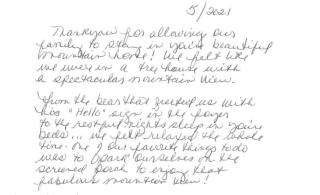 5/2021
Thankyou for allowing our
family to stay in your beautiful
mountain home! We felt like
we were in a tree house with
a spectacular mountain view.
From the bear that greeted us with
his "Hello" sign in the foyer
to the restful nights sleep in your
beds... we felt relaxed the whole
time. One of our favorite things to do
was to park ourselves on the
screened porch to enjoy that
fabulous mountain view!